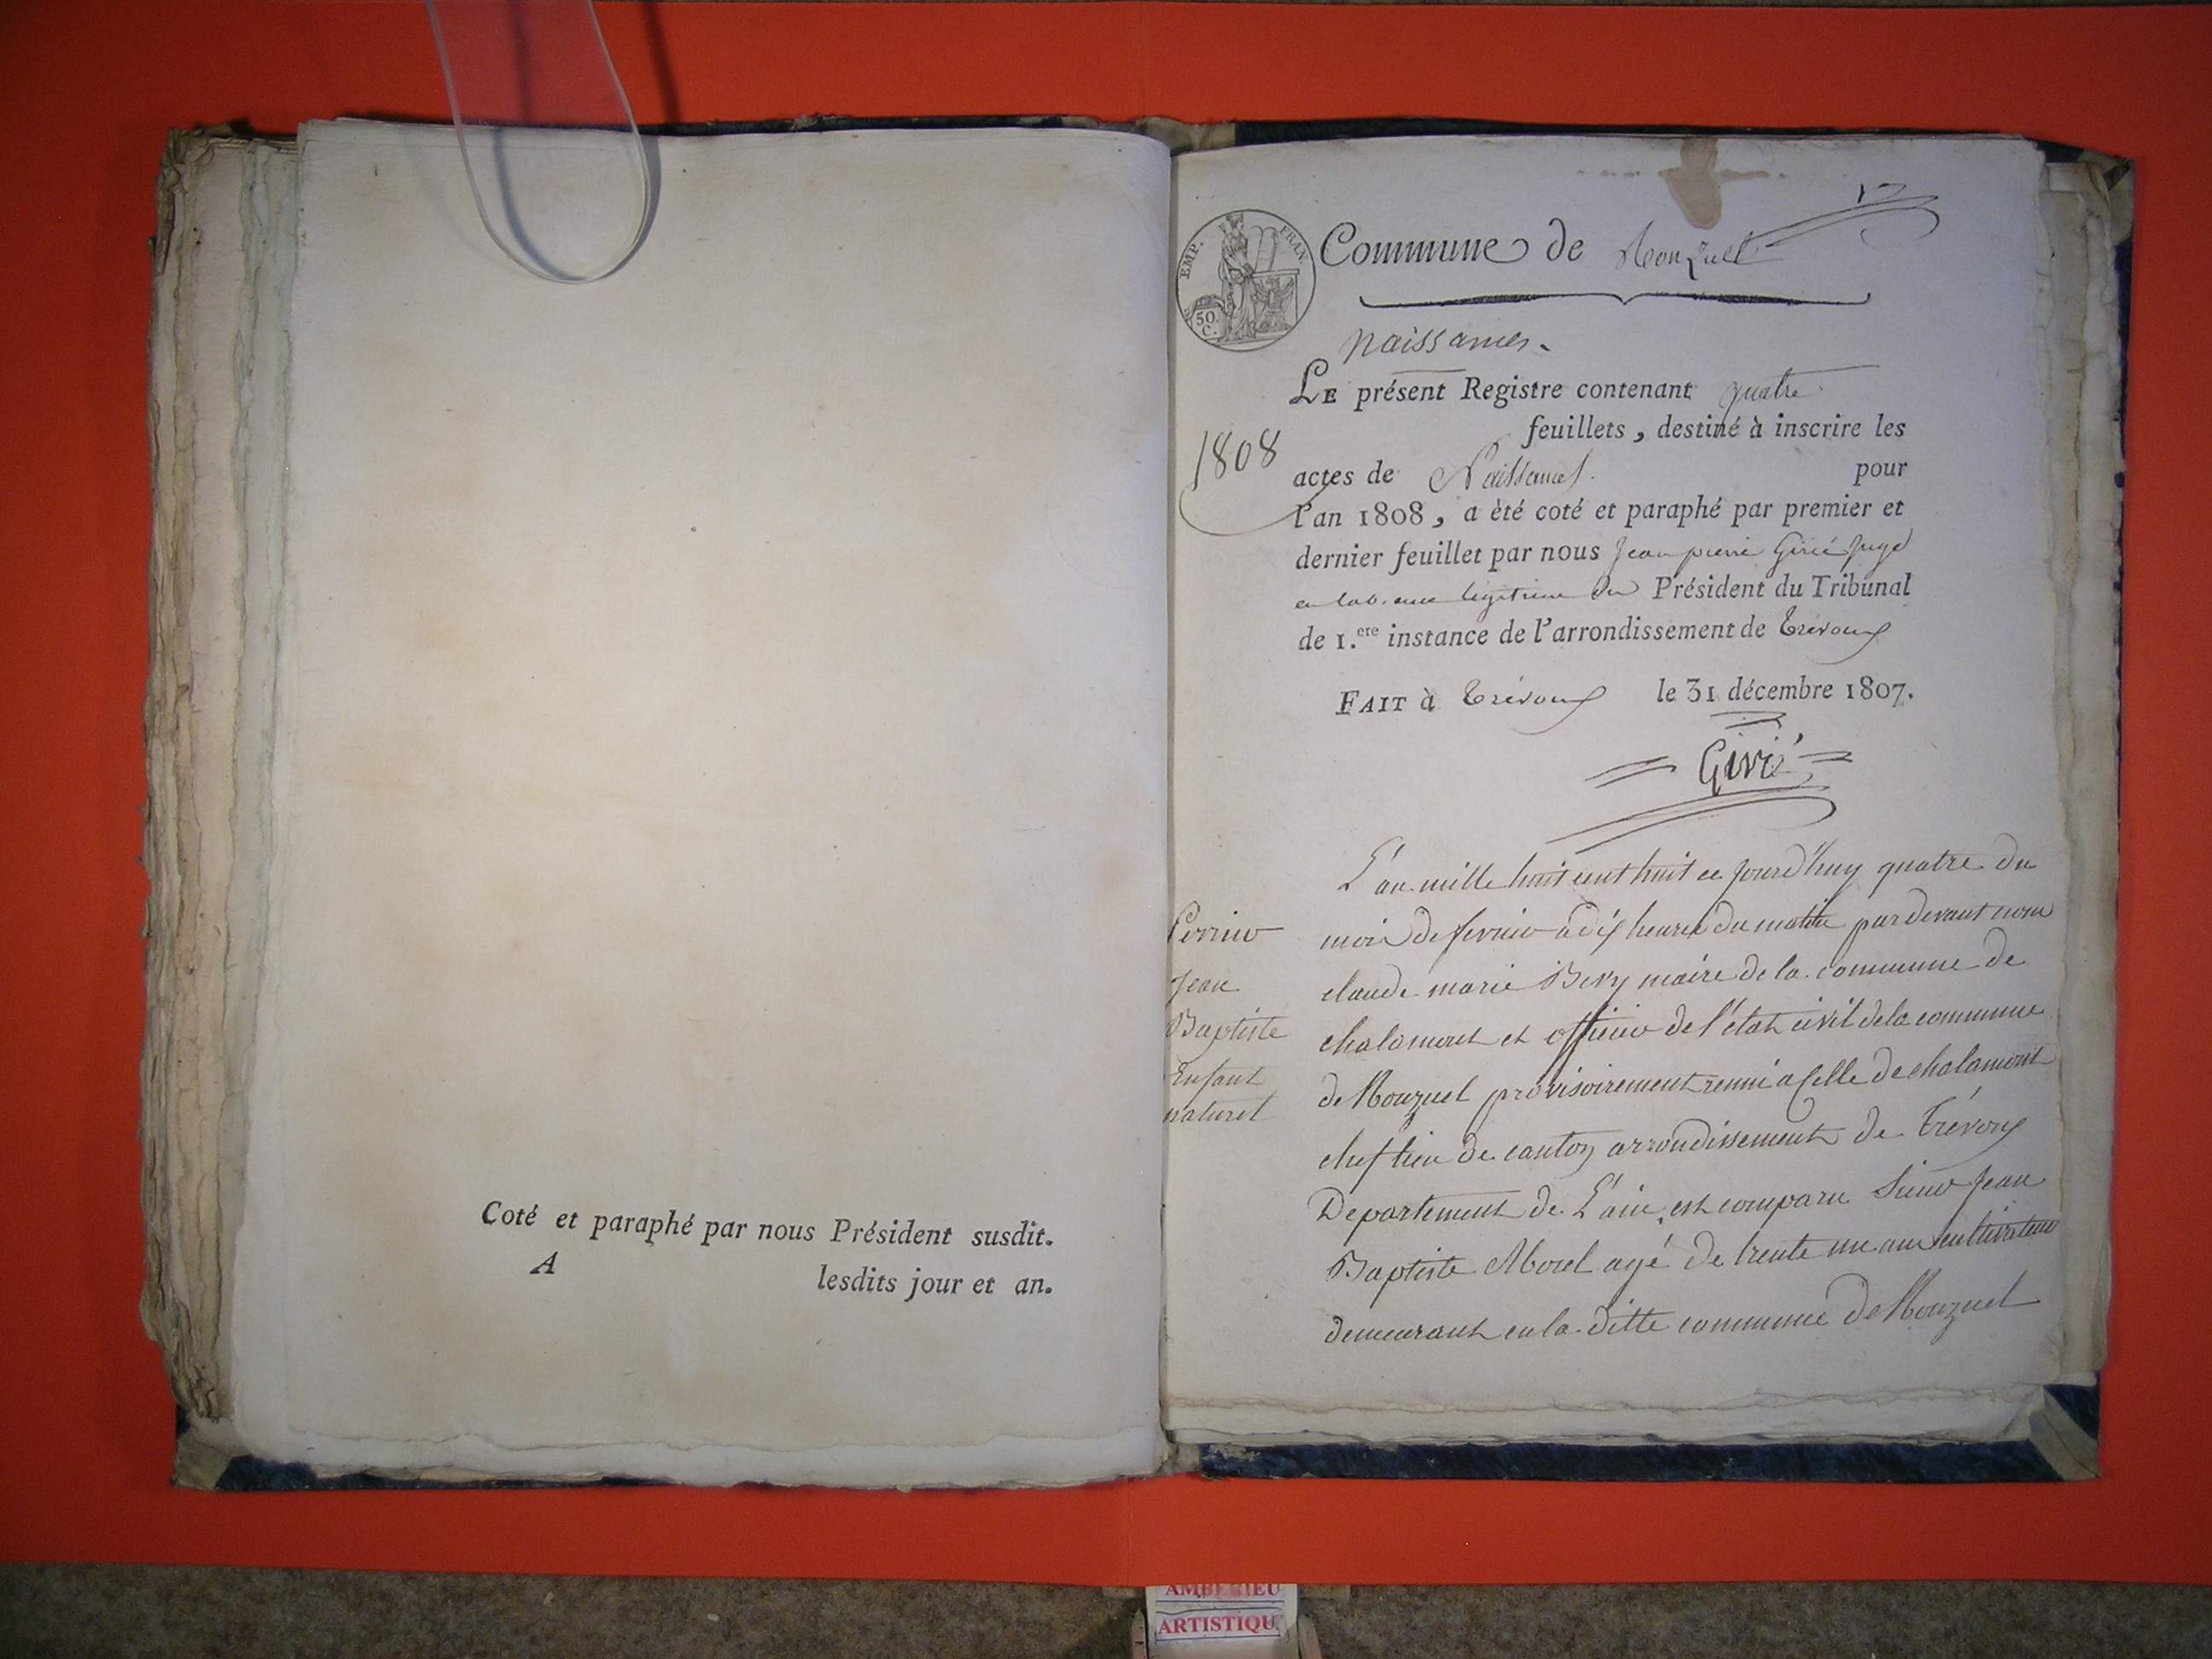 Coté et paraphé par nous Président susdit.
A lesdits jour et an.
EMP. FRAN.
50.
C.
Commune de Ronzuel
naissances.
LE présent Registre contenant quatre
feuillets, destiné à inscrire les
1808
actes de Naissances. pour
l'an 1808, a été coté et paraphé par premier et
dernier feuillet par nous Jean pierre Girié Juge
legitime du Président du Tribunal
de 1.ere instance de l'arrondissement de Trévoux
FAIT à Trévoux le 31 décembre 1807.
Girié
L'an mille huit cent huit ce jourd'huy quatre du
mois de fevrier a dix heures du matin pardevant nous
claude marie maire de la commune de
chalamont et officier de l'état civil de la commune
de Ronzuel provisoirement reuni a Celle de chalamont
chef lieu de canton arrondissement de Trévoux
Departement de L'ain, est comparu Sieur Jean
Baptiste Morel agé de trente un ans cultivateur
demeurant en la ditte commune de Ronzuel
Perrier
Jean
Baptiste
Enfant
naturel
AMBERIEU
ARTISTIQU